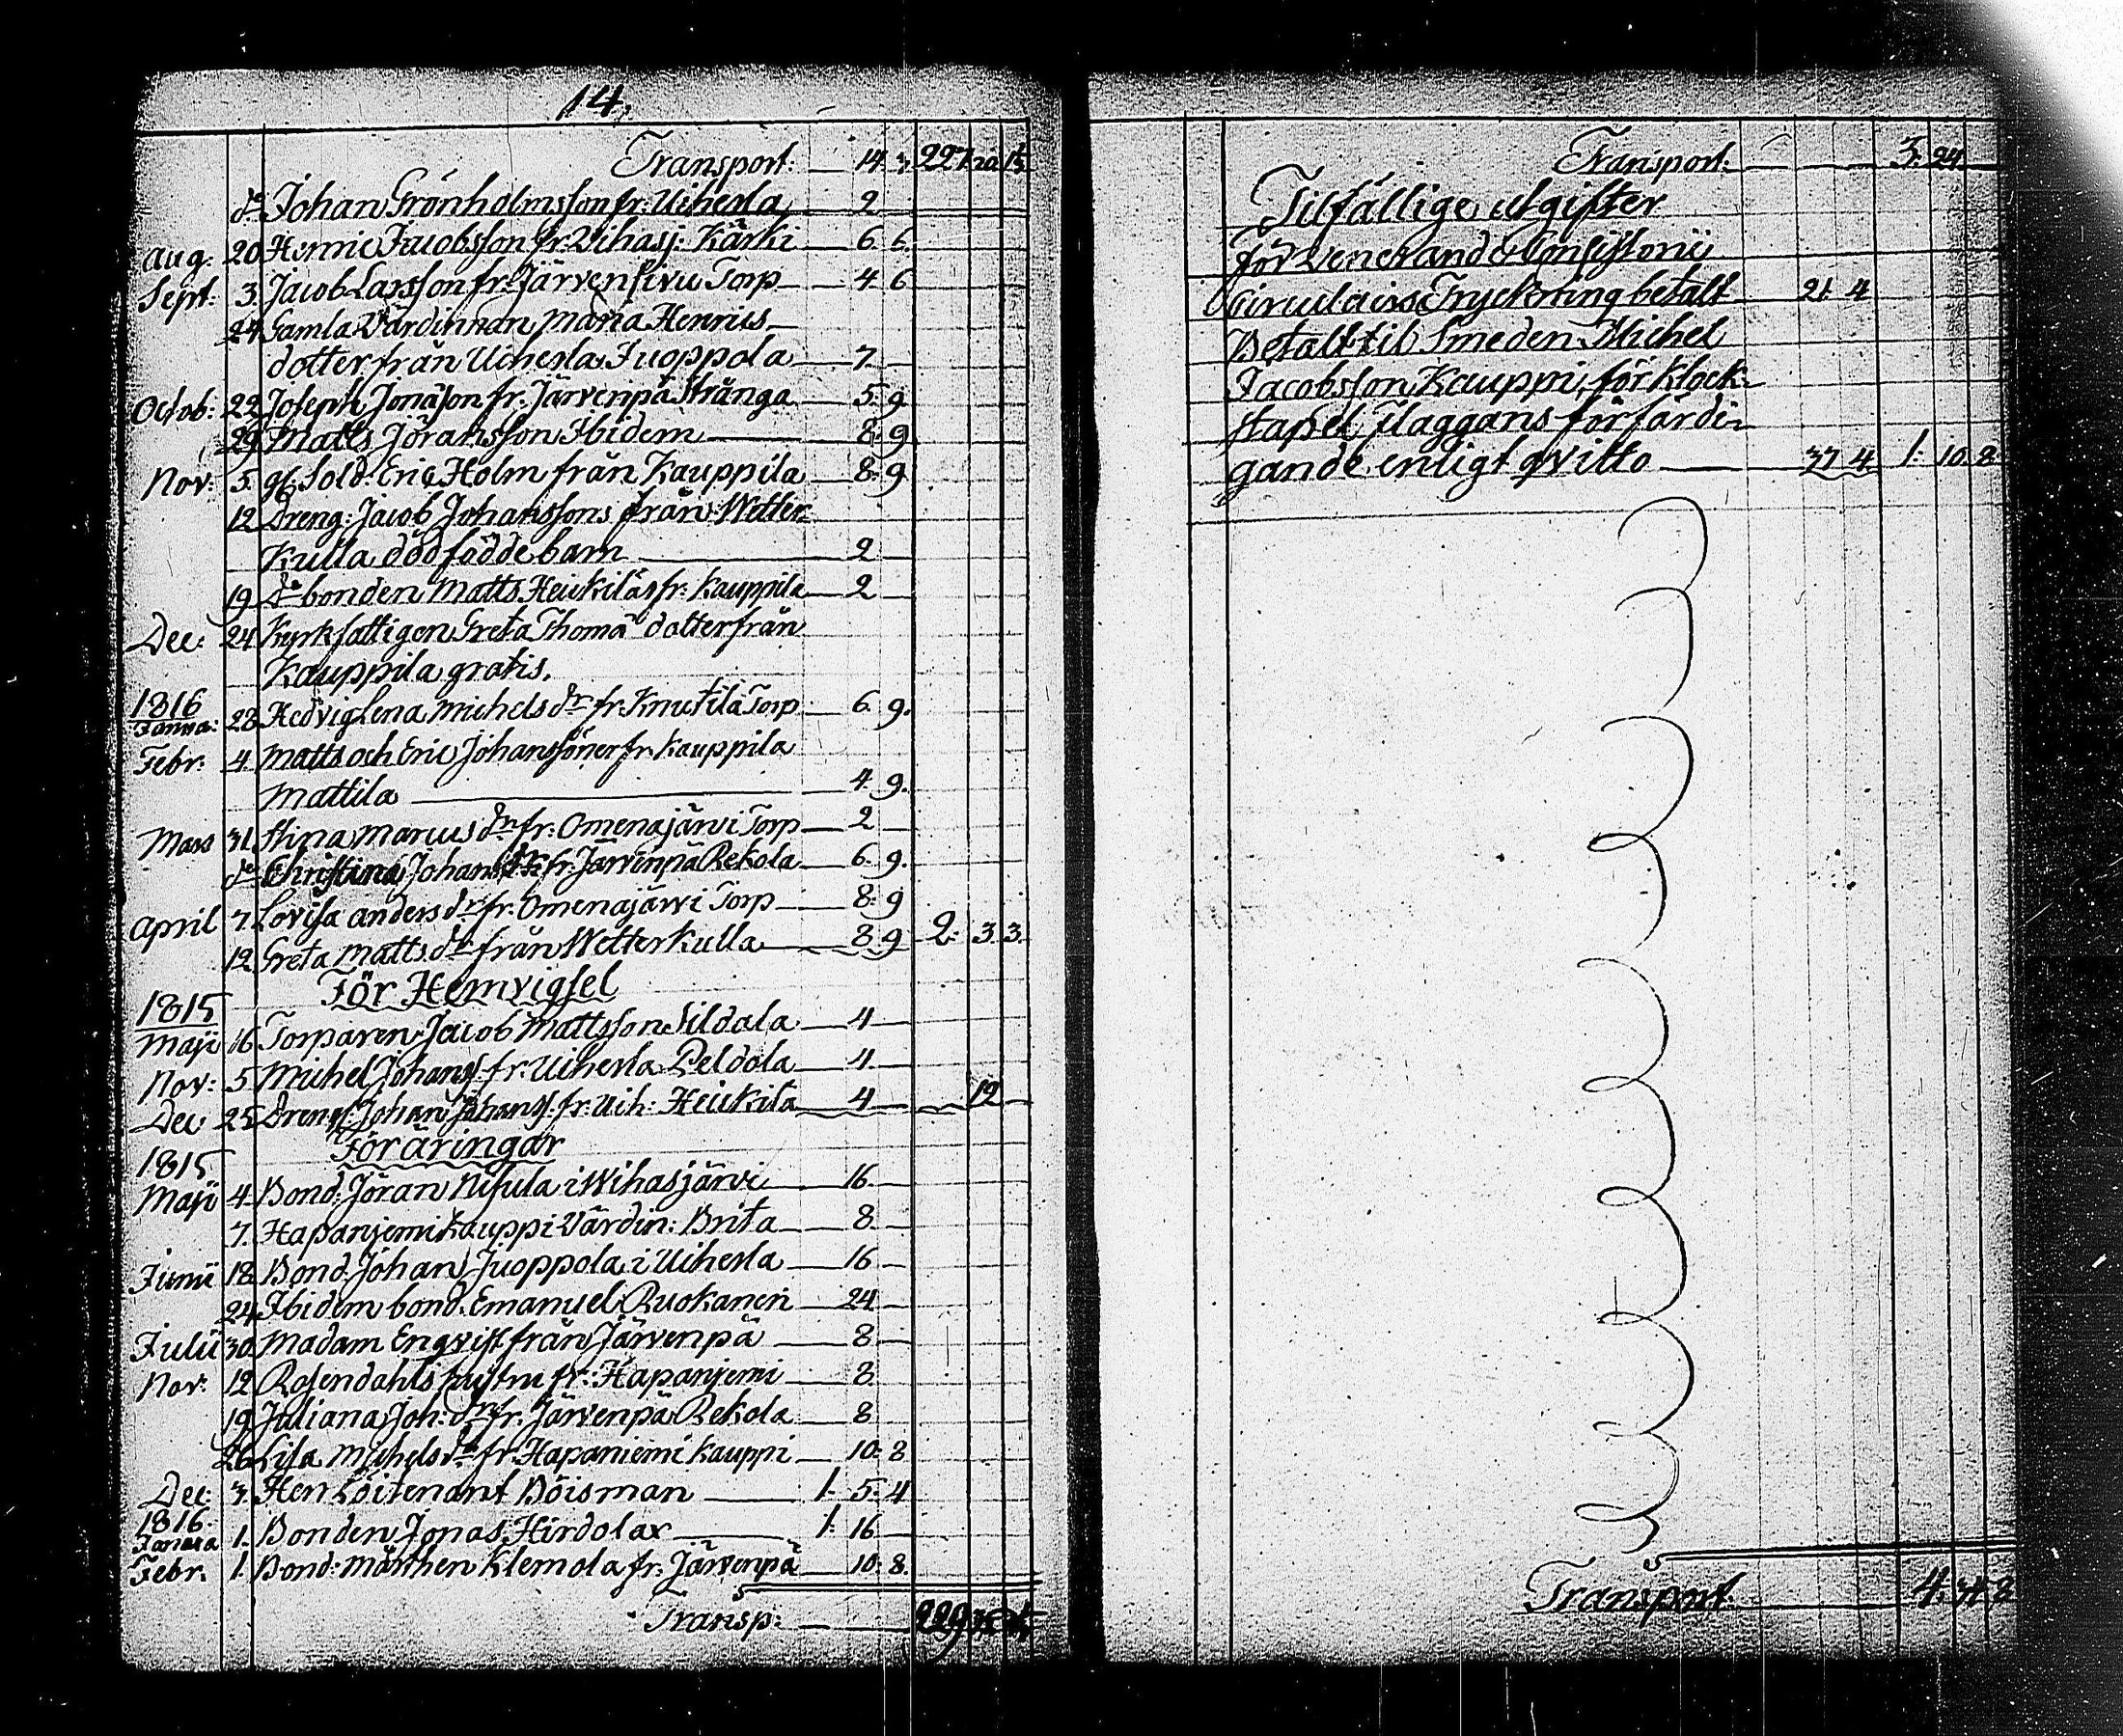 14.
Transport: 14. 3. 227. 20. 1½
do Johan Grönholmsson fr: Uiherla 2
Aug: 20 Henric Jacobsson fr: Wihasj: Kärki 6. 6.
Sept: 3. Jacob Larsson fr: Järvensivu Torp 4 6
24 Gamla Värdinnan Maria Henrics
dotter från Uiherla Juoppola 7
Octob: 22 Joseph Jonasson fr: Järvenpä Stränga 5. 9.
29 Matts Jöransson Ibidem 8. 9
Nov: 5. gl. Sold: Eric Holm från Kauppila 8. 9
12 Dreng: Jacob Johanssons från Wetter
Kulla dödfödde barn 2
19 do bonden Matts Heickiläs fr: Kauppila 2
Dec: 24 Kyrkfattigen Greta Thomä dotter från
Kauppila gratis.
1816
Janua: 28 Hedvig Lena Michels dr fr: Knutila Torp 6. 9.
Febr. 4 Matts och Eric Johanssöner fr: Kauppila
Mattila 4. 9.
Mars 31 Stina Marcus dr fr: Omenajärvi Torp 2
do Christina Johans dr fr: Järvenpä Rekola 6. 9.
April 7 Lovisa Anders dr fr: Omenajärvi Torp 8. 9
12 Greta Matts dr från Wetterkulla 8. 9 2. 3. 3.
För Hemvigsel
1815
Maji 16 Torparen Jacob Mattsson Sildala 4
Nov: 5 Michel Johans. fr: Uiherla Peldola 4
Dec 25 Dreng: Johan Johans. fr: Uih: Heickilä 4 12
Föräringar
1815
Maji 4 Bond: Jöran Nisula i Wihasjärvi 16
7. Hapanjemi Kauppi Värdin: Brita 8
Junii 18 Bond. Johan Juoppola i Uiherla 16
24 Ibidem bond. Emanuel Ruokanen 24
Julii 30 Madam Engvist från Järvenpä 8
Nov. 12 Rosendahls hustru fr: Hapanjemi 8
19 Juliana Joh: dr fr: Järvenpä Rekola 8
26 Lisa Michels dr fr: Hapaniemi Kauppi 10. 8
Dec 3. Herr Löitenant Böisman 1. 5. 4
1816
Janua 1. Bonden Jonas Hirdolax 1. 16
Febr. 1. Bond: Mårthen Klemola fr: Järvenpä 10. 8.
Transp: 229
Transport: 3. 24
Tilfällige utgifter
För Venerandi Consistorii
Circulairs Tryckning betalt 21 4
Betalt til Smeden Michel
Jacobsson Kauppi, för Klock-
stapel Flaggans förfärdi-
gande enligt qvitto 37 4 1. 10. 8
Transport 4. 34. 8